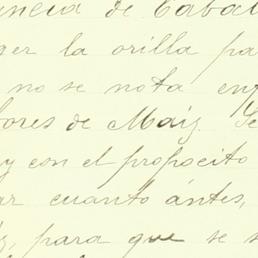 encia de Cabal
ger la orilla pa
no se nota en
bores de Maiz. Se
y con el propocito
ar cuanto ántes,
para que se s